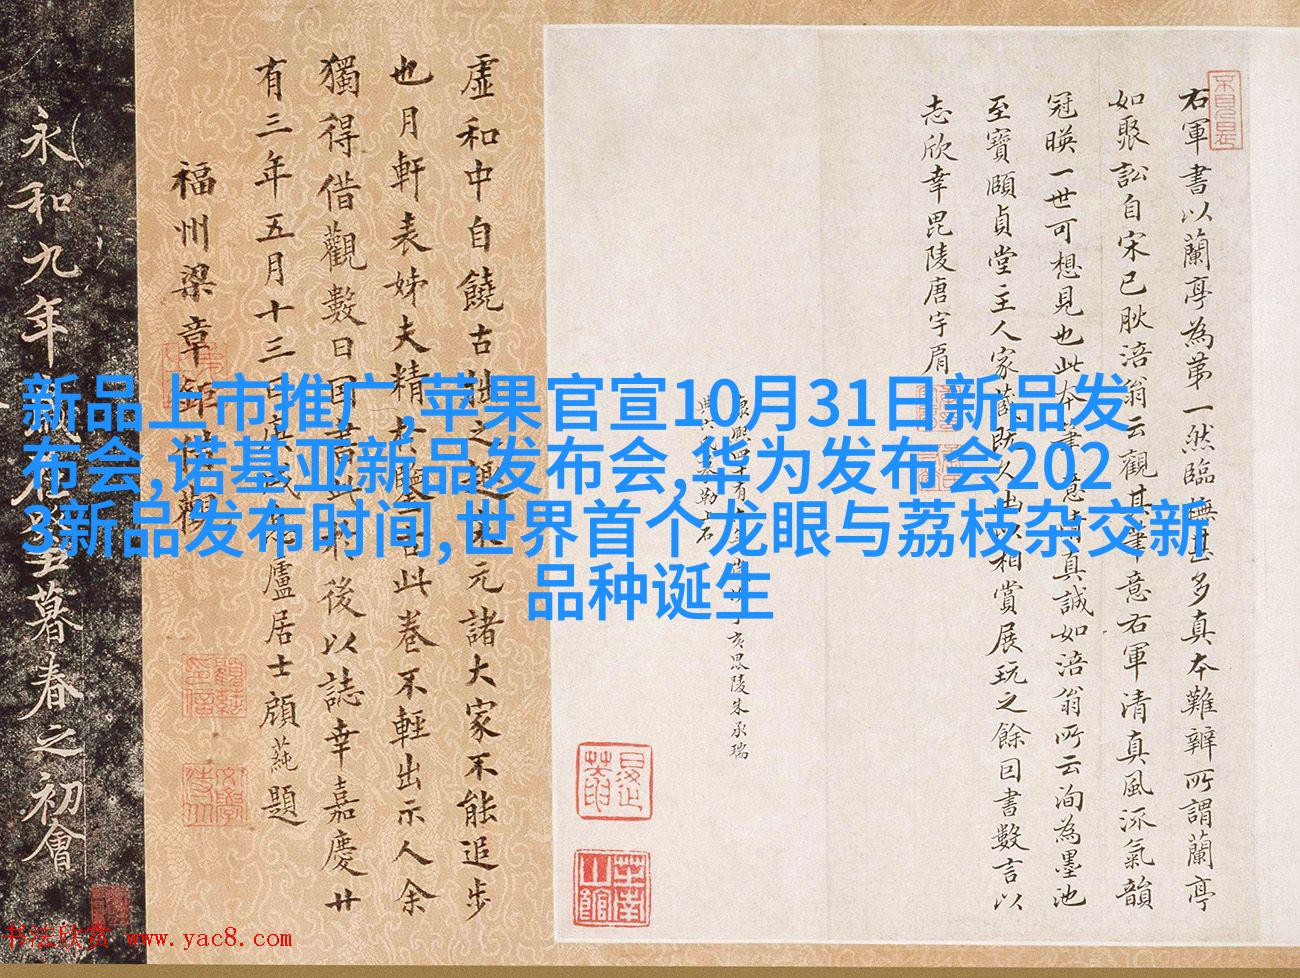 新品上市推广,苹果官宣10月31日新品发
布会,诺基亚新品发布会,华为发布会202
3新品发布时间,世界首个龙眼与荔枝杂交新
品种诞生
右軍書以蘭亭為第一然臨橅甚多真本難辨所謂蘭亭
如聚訟自宋已耿涪翁云觀其筆意右軍清真風流氣韻
冠暎一世可想見也此本筆意情真誠如涪翁所云洵為墨池
至寶頤貞堂主人家藏既久出以相賞展玩之餘因書數言以
志欣幸毘陵唐宇肩
虛和中自饒古拙之趣宋元諸大家不能追步
也月軒表姊夫精於鑒古此卷不輕出示人余
獨得借觀數日因書此於後以誌幸嘉慶廿
有三年五月十三日
盧居士顧蒓題
福州梁章鉅
觀
永和九年
暮春之初會
书法欣赏 www.yac8.com